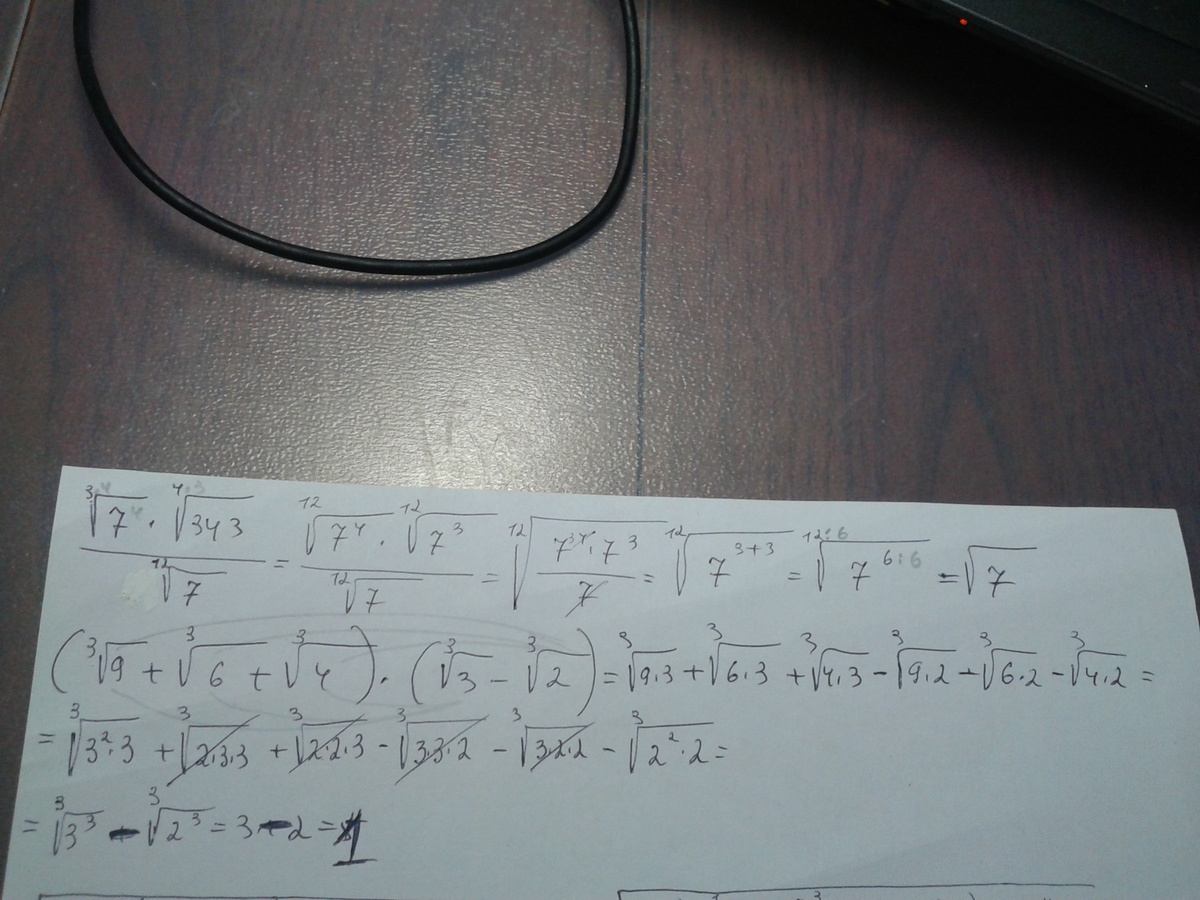 \frac{\sqrt[3]{7} \cdot \sqrt[4]{343}}{\sqrt[12]{7}} = \frac{\sqrt[12]{7^4} \cdot \sqrt[12]{7^3}}{\sqrt[12]{7}} = \sqrt[12]{\frac{7^{3} \cdot 7^3}{7}} = \sqrt[12]{7^{3+3}} = \sqrt[12:6]{7^{6:6}} = \sqrt{7}
(\sqrt[3]{9} + \sqrt[3]{6} + \sqrt[3]{4}) \cdot (\sqrt[3]{3} - \sqrt[3]{2}) = \sqrt[3]{9 \cdot 3} + \sqrt[3]{6 \cdot 3} + \sqrt[3]{4 \cdot 3} - \sqrt[3]{9 \cdot 2} - \sqrt[3]{6 \cdot 2} - \sqrt[3]{4 \cdot 2} =
= \sqrt[3]{3^2 \cdot 3} + \sqrt[3]{2 \cdot 3 \cdot 3} + \sqrt[3]{2 \cdot 2 \cdot 3} - \sqrt[3]{3 \cdot 3 \cdot 2} - \sqrt[3]{3 \cdot 2 \cdot 2} - \sqrt[3]{2^2 \cdot 2} =
= \sqrt[3]{3^3} - \sqrt[3]{2^3} = 3 - 2 = 1